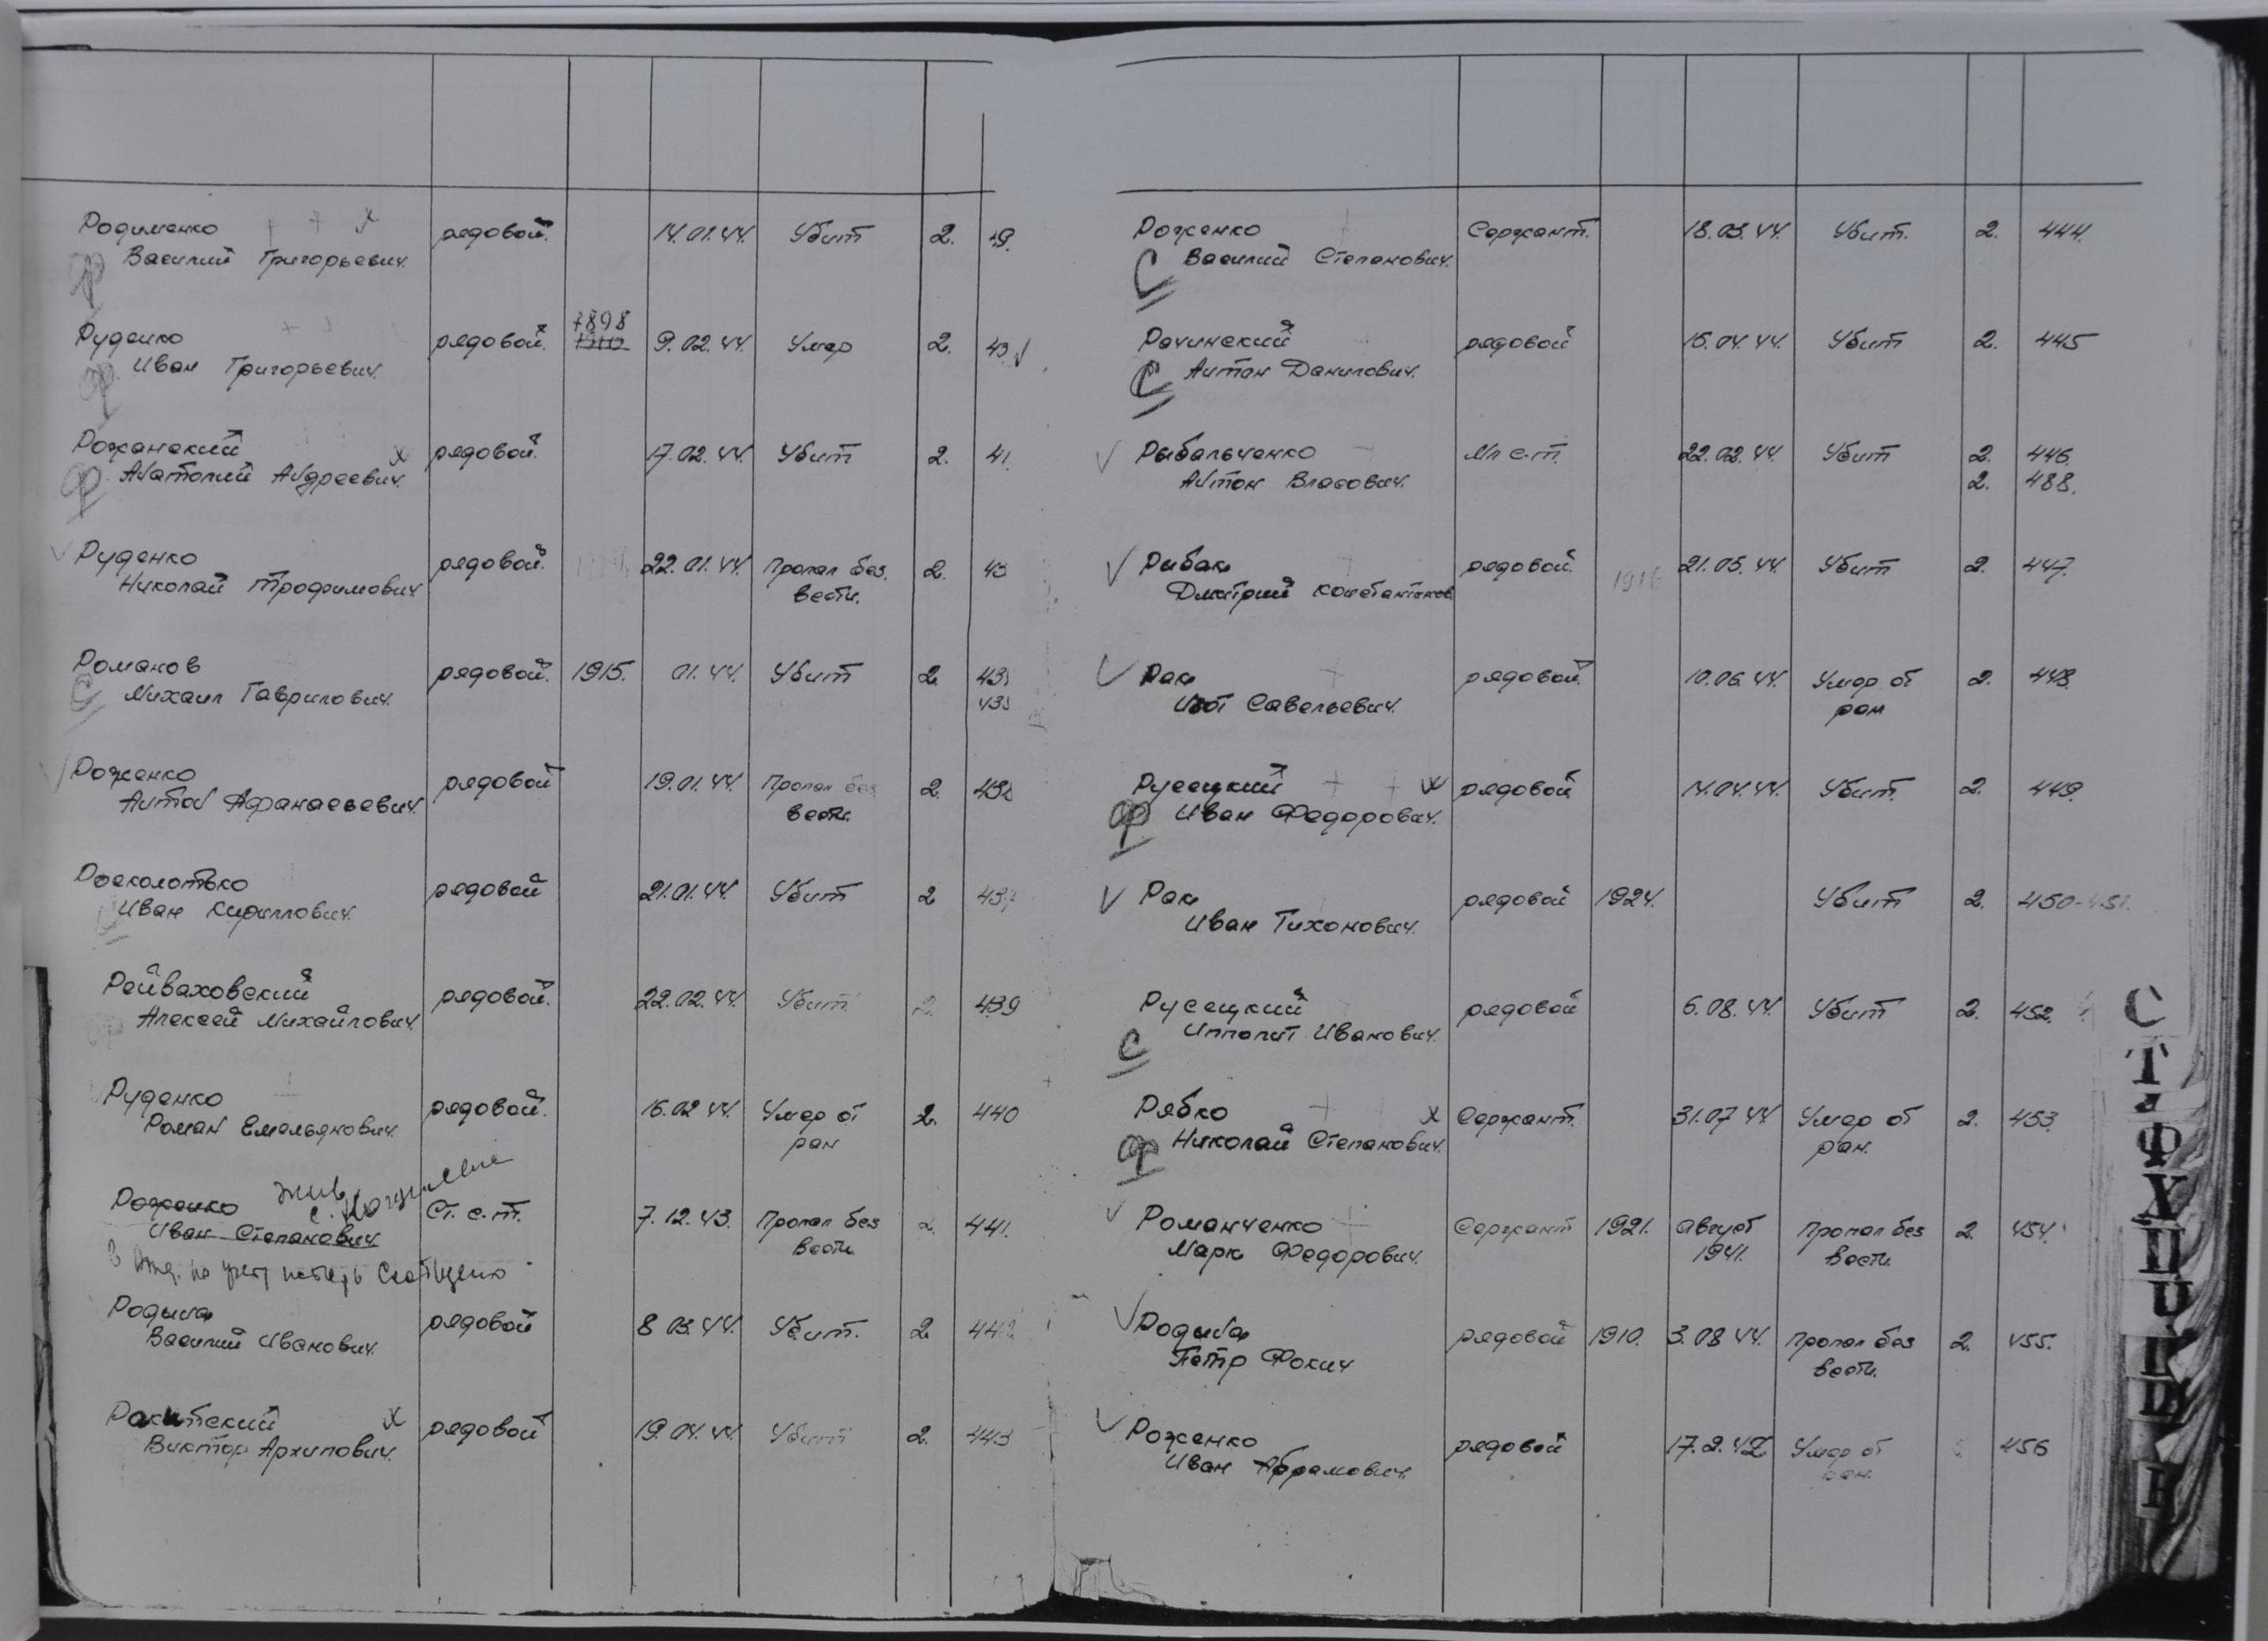 Родименко рядовой. 14.01.44. Убит 2. 19.
Василий Григорьевич.
Руденко рядовой. 1898 1910 9.02.44. Умер 2. 43
Иван Григорьевич.
Рожанский рядовой. 17.02.44. Убит 2. 41.
Анатолий Андреевич.
Руденко рядовой. 22.01.44. Пропал без 2. 43
Николай Трофимович вести.
Романов рядовой. 1915. 01.44. Убит 2. 43
С Михаил Гаврилович.
Роженко рядовой 19.01.44. Пропал без 2. 438
Антон Афанасьевич. вести.
Росколотько рядовой 21.01.44. Убит 2 437
Иван Кириллович.
Рейваховский рядовой. 22.02.44. Убит 2. 439
Алексей Михайлович.
Руденко рядовой. 16.02.44. Умер от 2. 440
Роман Емельянович. ран
Роженко жив Ст. с-т. 7.12.43. Пропал без 2. 441.
Иван Степанович с. вести
В отд. по учету потерь сообщено
Родына рядовой 8 03.44. Убит. 2. 442
Василий Иванович.
Ракитский х рядовой 19.04.44. Убит 2. 443
Виктор Архипович.
Роженко Сержант. 18.03.44. Убит. 2. 444.
С Василий Степанович.
Рачинский рядовой 15.04.44. Убит 2. 445
С Антон Данилович.
Рыбальченко Мл с-т. 22.02.44. Убит 2. 446.
Антон Власович. 2. 488.
Рыбак рядовой. 1916 21.05.44. Убит 2. 447.
Дмитрий Константинов
Рак рядовой. 10.06.44. Умер от 2. 448.
Изот Савельевич. ран
Русецкий х рядовой 14.04.44. Убит. 2. 449.
Ф Иван Федорович.
Рак рядовой 1924. Убит 2. 450-451.
Иван Тихонович.
Русецкий рядовой 6.08.44. Убит 2. 452.
С Ипполит Иванович.
Рябко х Сержант. 31.07.44 Умер от 2. 453.
Ф Николай Степанович. ран.
Романченко Сержант 1921. август Пропал без 2. 454.
Марк Федорович. 1941. вести.
Родына рядовой 1910. 3.08.44. Пропал без 2. 455.
Петр Фокич вести.
Роженко рядовой 17.2.42 Умер от 456
Иван Абрамович. ран.
С
Т
Ф
Х